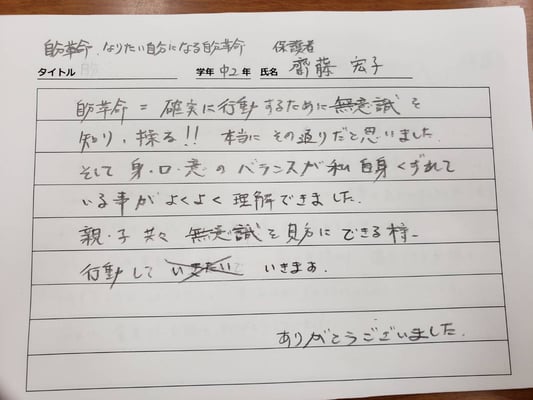 自分革命 なりたい自分になる自分革命 保護者
タイトル 学年 中2 年 氏名 齋藤 宏子
自分革命 = 確実に行動するために無意識を
知り、操る!! 本当にその通りだと思いました.
そして 身・口・意のバランスが私自身くずれて
いる事がよくよく理解できました.
親・子共々 無意識を見方にできる様
行動して いきたいで いきまあ.
ありがとうございました.